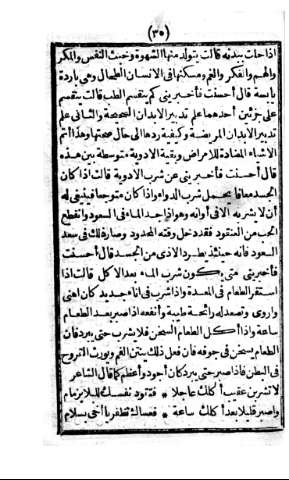 (٣٥)
اذا حات بيدنه قالت يتولد منها الشهوة وخبث النفس والمكر
والهم والفكر والغم ومسكنها فى الانسان الطحال وهى باردة
يابسة قال أحسنت فأخبرينى كم ينقسم الطب قالت ينقسم
على جزئين أحدهما علم تدبير الابدان الصحيحة والثانى علم
تدبير الابدان المريضة وكيفية ردها الى حال صحتها وهذا أتم
الاشياء المضادة للامراض وبقية الادوية متوسطة بين هذه
قال أحسنت فأخبرينى عن شرب الادوية قالت اذا كان
الجسد معافا يحمل شرب الدواء واذا كان متوجعا فينبغى له
أن لا يشربه الا فى أوانه وهو اذا جد الماء فى السعود وانقطع
الحب من العنقود فقد دخل وقته المحدود وصار ذلك فى سعد
السعود فانه حينئذ يطرد الاذى من الجسد قال أحسنت
فأخبرينى متى يكون شرب الماء بعد الاكل قالت اذا
استقر الطعام فى المعدة واذا شرب فى اناء جديد كان اهنى
واروى وتصعد له رائحة طيبة وأنفعه اذا صبر بعد الطعام
ساعة واذا أكل الطعام السخن فلا يشرب حتى يبرد فان
الطعام يسخن فى جوفه فان فعل ذلك ينتن الفم ويورث التروح
فى البطن فاذا صبر حتى يبرد كان أجود وأعظم كما قال الشاعر
لا تشربن عقيب أكلك عاجلا * فتقود نفسك للبلا بزمام
واصبر قليلا بعد أكلك ساعة * فعساك تظفر يا أخى بسلام